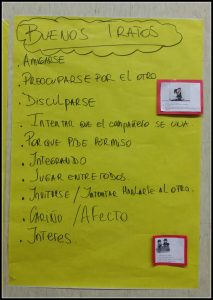 BUENOS TRATOS
. AMIGARSE
. PREOCUPARSE POR EL OTRO
. DISCULPARSE
. INTENTAR QUE EL COMPAÑERO SE UNA
. PORQUE PIDE PERMISO
. INTEGRANDO
. JUGAR ENTRE TODOS.
. INVITARSE / INTENTAR HABLARLE AL OTRO.
. CARIÑO / AFECTO
. INTERES